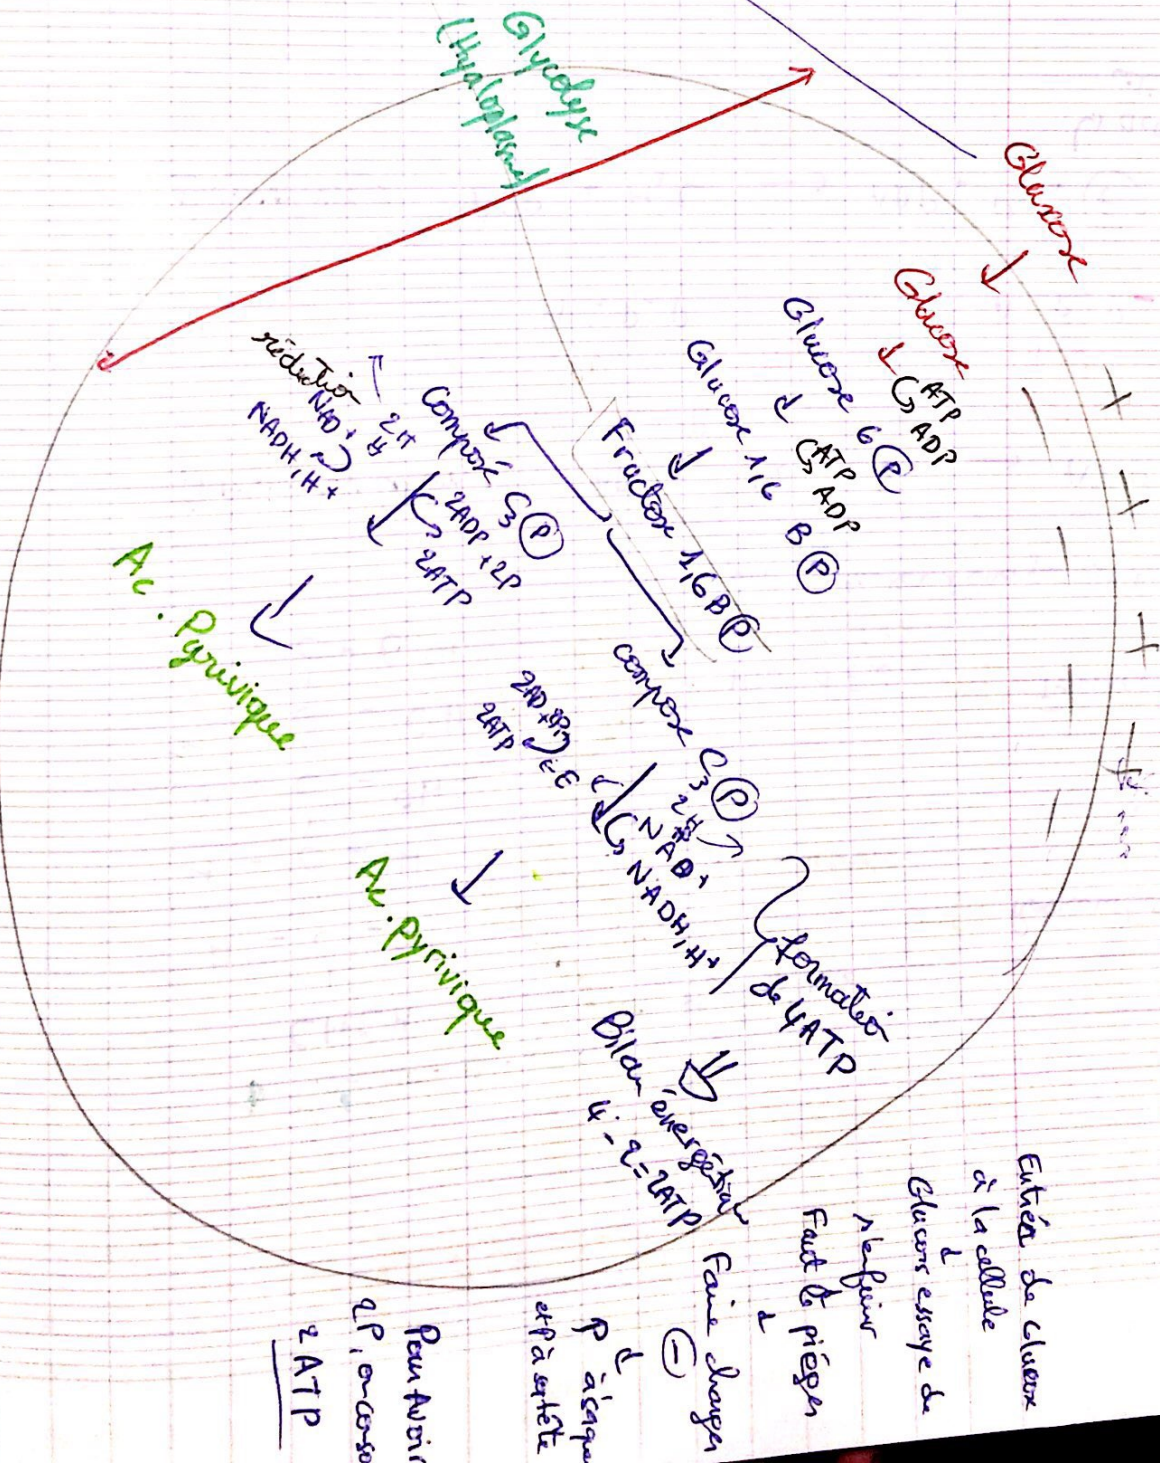 Glycolyse
(Hyaloplasme)
Glucose
Glucose
ATP
ADP
Glucose 6 P
ATP
ADP
Glucose 1,6 B P
Fructose 1,6 B P
Composé C3 P
2H
réduction
NAD+
NADH,H+
2ADP+2P
2ATP
Ac. Pyruvique
compose C3 P
2H
NAD+
NADH,H+
2ATP
Ac. pyrivique
formation
de 4ATP
Bilan énergétique
4 - 2 = 2ATP
Entrée de Glucose
à la cellule
Glucose essaye de
s'enfuir
Faut le piéger
Faire charger
-
P à
et P à sa tête
Pour Avoir
2P, on conso
2ATP